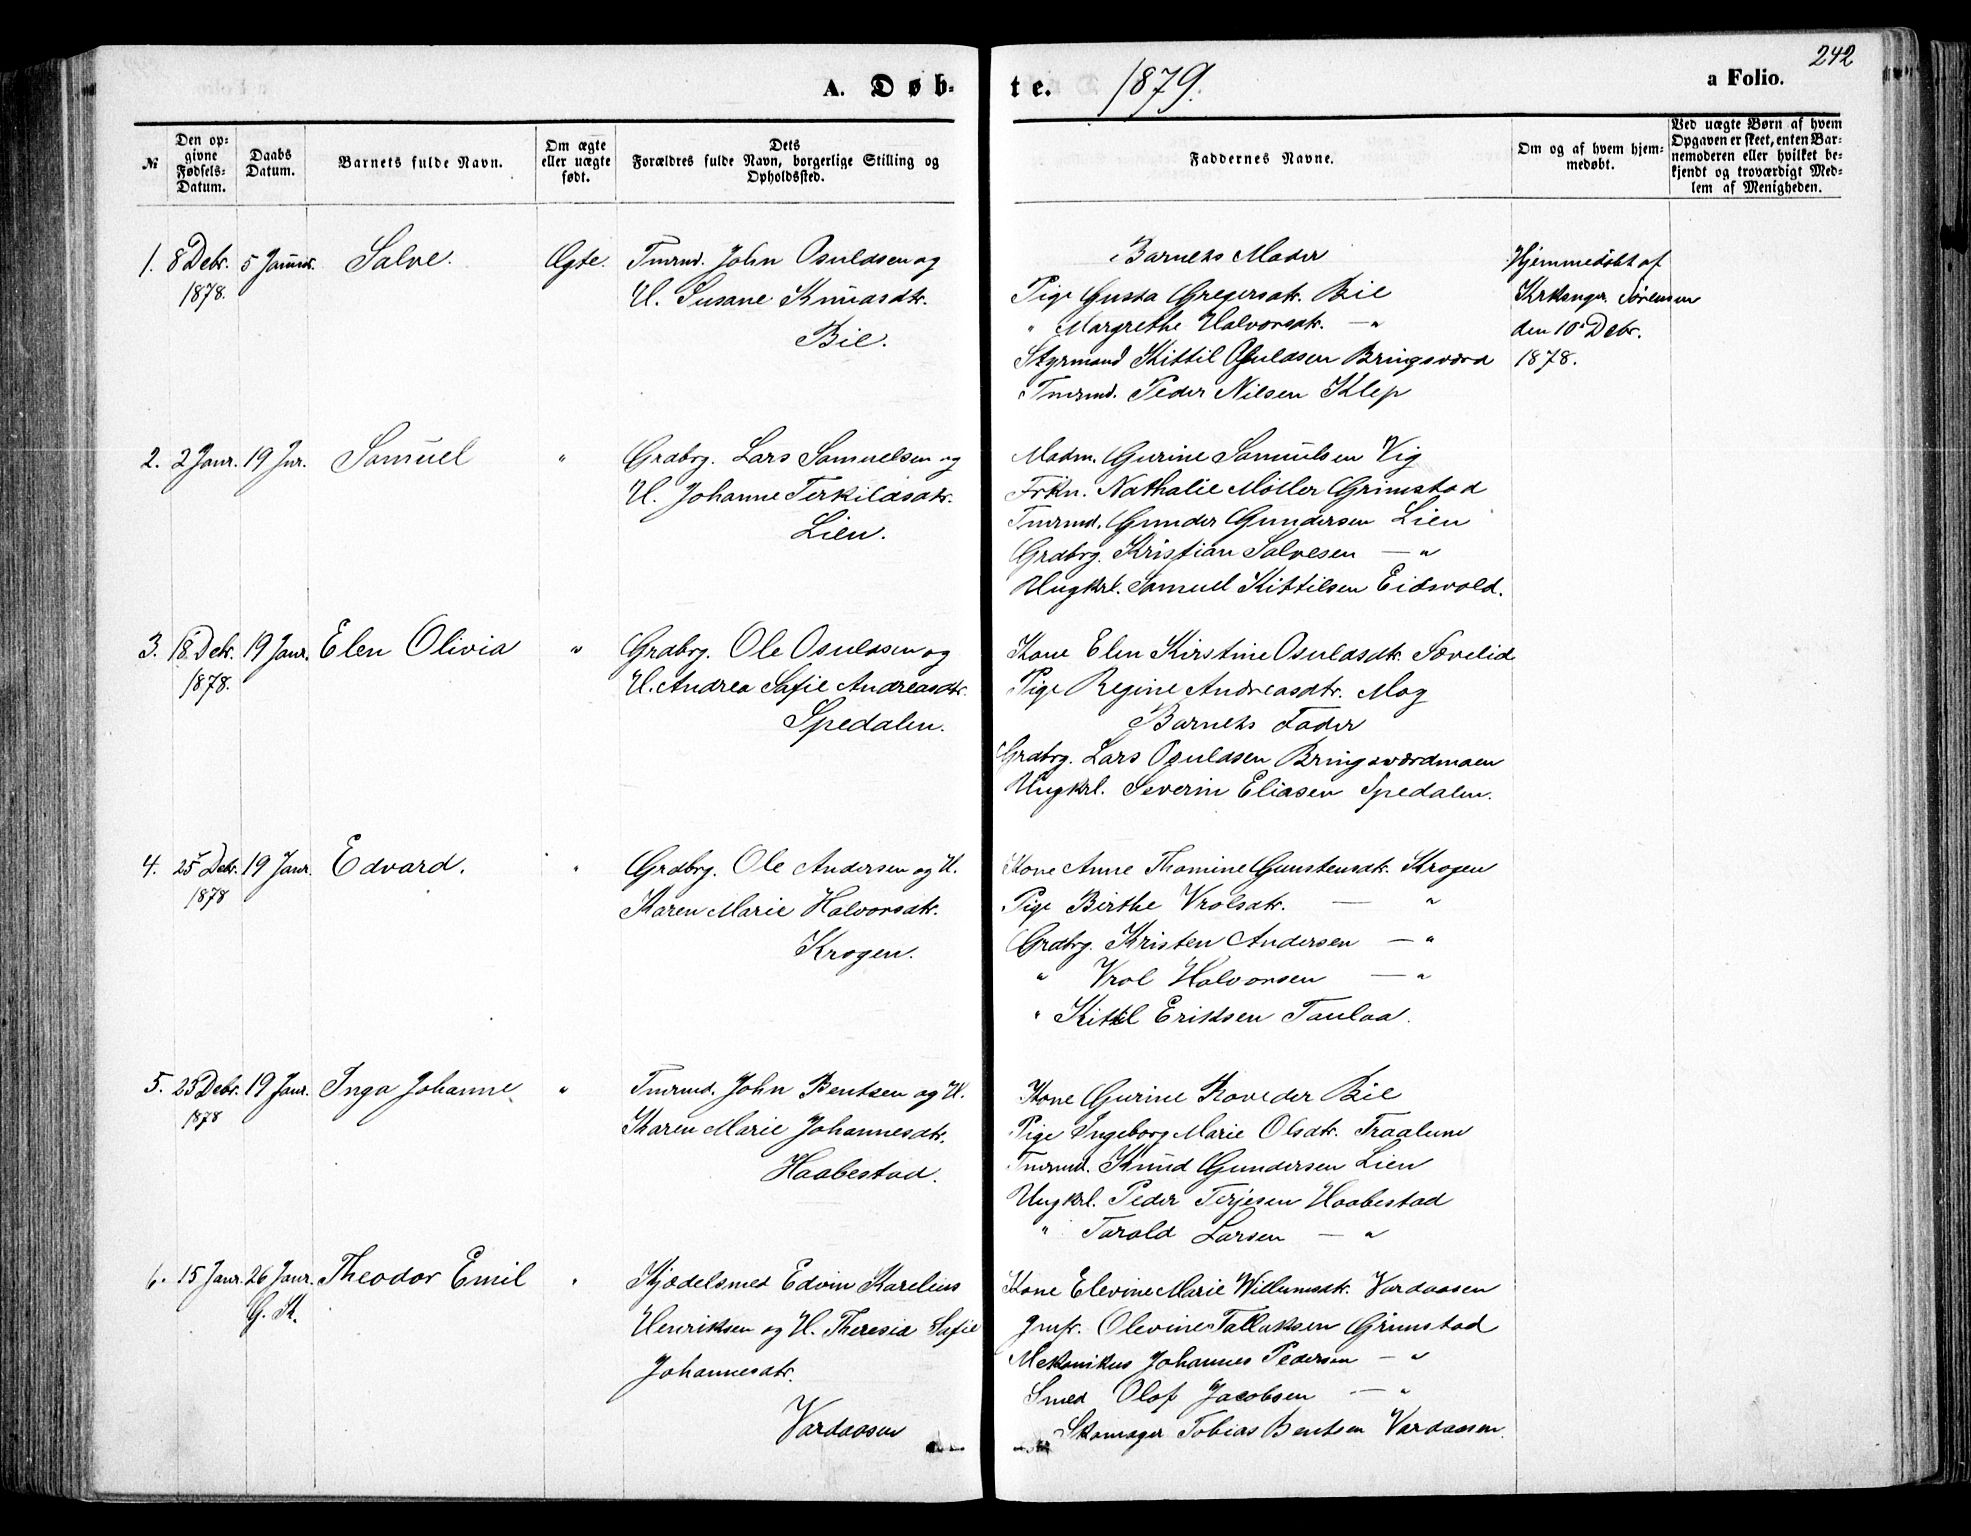 242
A. Døbte. 1879.
a Folio.
№
Den opgivne Fødsels-Datum.
Daabs Datum.
Barnets fulde Navn.
Om ægte eller uægte født.
Dets Forældres fulde Navn, borgerlige Stilling og Opholdssted.
Faddernes Navne.
Om og af hvem hjemmedøbt.
Ved uægte Børn af hvem Opgaven er skeet, enten Barnemoderen eller hvilket bekjendt og troværdigt Medlem af Menigheden.
1. 8 Debr. 5 Januar. Salve. Ægte. Tmrmd. John Osuldsen og
1878. H. Susane Knudsdtr.
Bie.
Barnets Moder
Pige Gusta Gregersdtr. Bie
" Margrethe Halvorsdtr. — "
Styrmand Kittil Osuldsen Bringsværd
Tmrmd. Peder Nilsen Klep
Hjemmedøbt af
Krksngr. Sørensen
den 10 Debr.
1878.
2. 2 Janr. 19 Jnr. Samuel " Grdbrg. Lars Samuelsen og
H. Johanne Terkildsdtr.
Lien.
Madm. Gurine Samuelsen Vig
Frkn. Nathalie Møller Grimstad
Tmrmd. Gunder Gundersen Lien
Grdbrg. Kristian Salvesen — "
Ungkrl. Samuel Kittilsen Eidsvold.
3. 18 Debr. 19 Janr. Elen Olivia " Grdbrg. Ole Osuldsen og
1878. H. Andrea Sofie Andreasdtr.
Spedalen.
Kone Elen Kirstine Osuldsdtr. Sævelid
Pige Regine Andreasdtr. Mog
Barnets Fader
Grdbrg. Lars Osuldsen Bringsværdmoen
Ungkrl. Severin Eliasen Spedalen.
4. 25 Debr. 19 Janr. Edvard. " Grdbrg. Ole Andersen og H.
1878 Karen Marie Halvorsdtr.
Krogen.
Kone Anne Thomine Gunstensdtr. Krogen
Pige Birthe Vrolsdtr. — "
Grdbrg. Kristen Andersen — "
" Vrol Halvorsen — "
" Kittil Eriksen Taulaa.
5. 25 Debr. 19 Janr. Inga Johanne. " Tmrmd. John Bentsen og H.
1878 Karen Marie Johannesdtr.
Haabestad.
Kone Gurine Roveder Bie
Pige Ingeborg Marie Olsdtr. Traalum
Tmrmd. Knud Gundersen Lien
Ungkrl. Peder Terjesen Haabestad
" Torold Larsen — "
6. 15 Janr. 26 Janr. Theodor Emil " Kjedelsmed Edvin Karelius
G. K. Henriksen og H. Theresia Sofie
Johannesdtr.
Vardaasen
Kone Elevine Marie Willumsdtr. Vardaasen
Jmfr. Olevine Tallaksen Grimstad
Mekanikus Johannes Pedersen — "
Smed Olof Jacobsen — "
Skomager Tobias Bentsen Vardaasen.